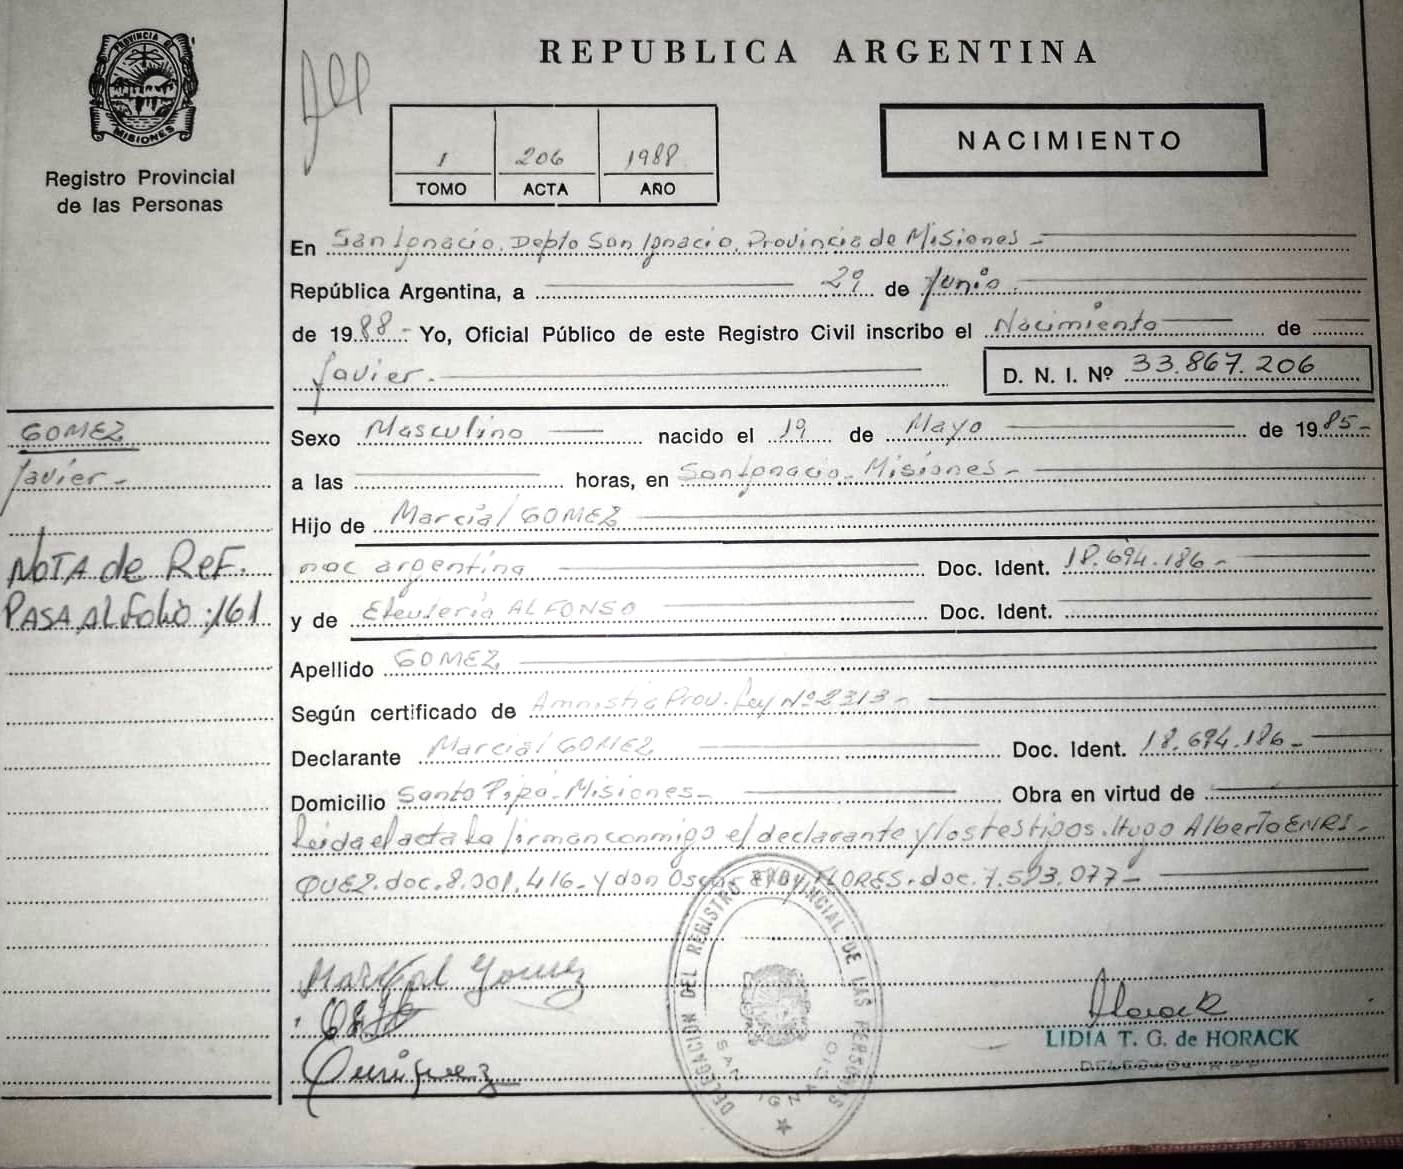 PROVINCIA DE
MISIONES
Registro Provincial
de las Personas
REPUBLICA ARGENTINA
1 206 1988
TOMO ACTA AÑO
NACIMIENTO
En San Ignacio. Depto San Ignacio. Provincia de Misiones -
República Argentina, a 29 de Junio.
de 1988.- Yo, Oficial Público de este Registro Civil inscribo el Nacimiento de
Javier.-
D. N. I. Nº 33.867.206
GOMEZ
Javier-
NOTA de REF.
PASA AL Folio :161
Sexo Masculino nacido el 19 de Mayo de 1985-
a las horas, en San Ignacio - Misiones -
Hijo de Marcial GOMEZ
nac argentina Doc. Ident. 18.694.186-
y de Eleuteria ALFONSO Doc. Ident.
Apellido GOMEZ
Según certificado de Amnistia Prov. Ley Nº 2313-
Declarante Marcial GOMEZ Doc. Ident. 18.694.186-
Domicilio Santo Pipá - Misiones- Obra en virtud de
Leida el acta la firman conmigo el declarante y los testigos. Hugo Alberto ENRI-
QUEZ. doc. 8.001.416- y don Oscar FLORES. doc. 7.593.077-
Marcial Gomez
Enriquez
DELEGACION DEL REGISTRO PROVINCIAL DE LAS PERSONAS
SAN IGNACIO
Horack
LIDIA T. G. de HORACK